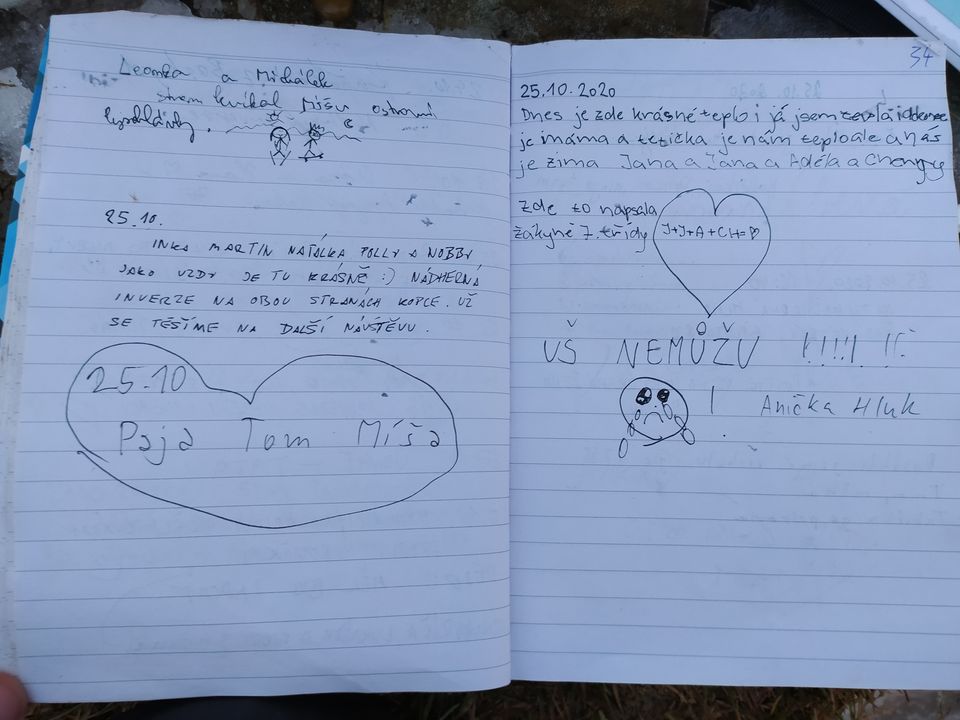 Leonka a Michálek
strom kvíkal Míšu ostatní
25.10.
INKA MARTIN NATÁLKA POLLY A NOBBY
JAKO VŽDY JE TU KRÁSNĚ :) NÁDHERNÁ
INVERZE NA OBOU STRANÁCH KOPCE. UŽ
SE TĚŠÍME NA DALŠÍ NÁVŠTĚVU.
25.10
Pája Tom Míša
34
25.10.2020
Dnes je zde krásné teplo i já jsem teplá
je i máma a tetička je nám teplo ale a nás
je zima Jana a Jana a Adéla a
Zde to napsala
žákyně 7. třídy
J+J+A+CH=♡
UŠ NEMŮŽU !!!!! !!
! Anička Hluk